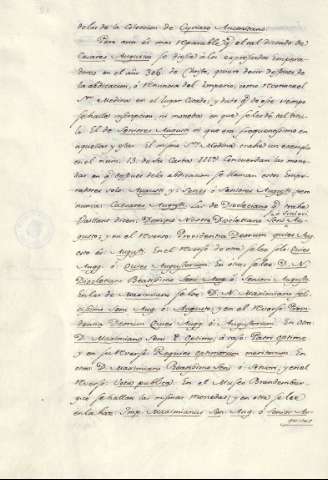 delos de la Coleccion de Cyriaco Anconitano.
Pero aun es mas reparable q̃ el tal dictado de
Cesares Augustos se diesse a los expresados Empera-
dores en el año 306 de Christo, quiero decir despues de
la abdicacion, ó renuncia del Imperio, como reconoce el
Sr. Medina en el lugar citado; y dudo q̃ de ese tiempo
se halle inscripcion, ni moneda en que se les dé tal titu-
lo. El de Seniores Augusti si que era frequentissimo en
aquellas y estas. El mismo Sr. Medina trahe un exemplo
en el num. 13. de su Carta IIII. Concuerdan las mone-
das en q̃ despues de la abdicacion se llaman estos Empe-
radores solo Augusti, y Senes, ó Seniores Augusti, pero
nunca Caesares Augusti. Las de Diocleciano q̃ trahe
Vaillant dicen: Domino Nostro Diocletiano Seni, ó Seniori Au-
gusto; y en el reverso: Providentia Deorum quies Aug.
esto es Augusti. En el reverso de otra se lee solo Quies
Augg. ó Quies Augustorum. En otras se lee: D. N.
Diocletiano Beatissimo Seni Aug. ó Seniori Augusto.
En las de Maximiano se lee: D. N. Maximiano feli-
cissimo Seni Aug. ó Augusto; y en el reverso Provi-
dentia Deorum Quies Augg. ó Augustorum. En otra
D. Maximiano Seni Optimo, ó sea: Patri optimo
y en su reverso Requies optimorum meritorum. En
otra: D. Maximiano Beatissimo Seni ó Seniori, y en el
reverso: Vota publica. En el Museo Brandembur-
gico se hallan las mismas monedas; y en otra se lee
en la haz: Imp. Maximianus Sen. Aug. ó Senior Au-
gustus